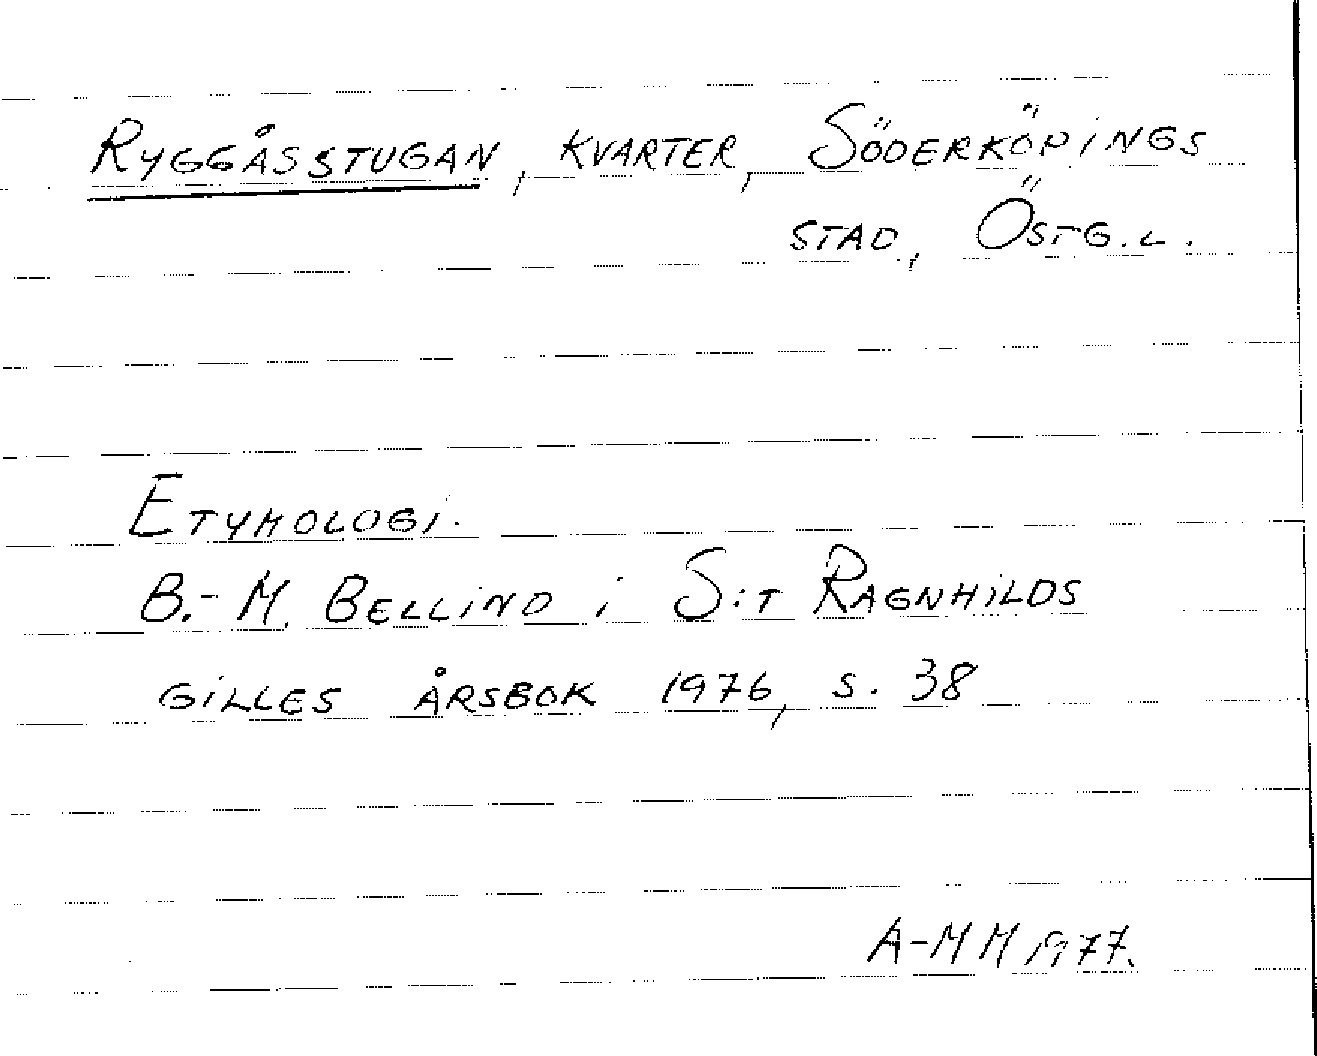 RYGGÅSSTUGAN, KVARTER, SÖDERKÖPINGS
STAD, ÖSTG.L.
ETYMOLOGI.
B.-M. BELLIND i S:T RAGNHILDS
GILLES ÅRSBOK 1976, S. 38
A-MM 1977.